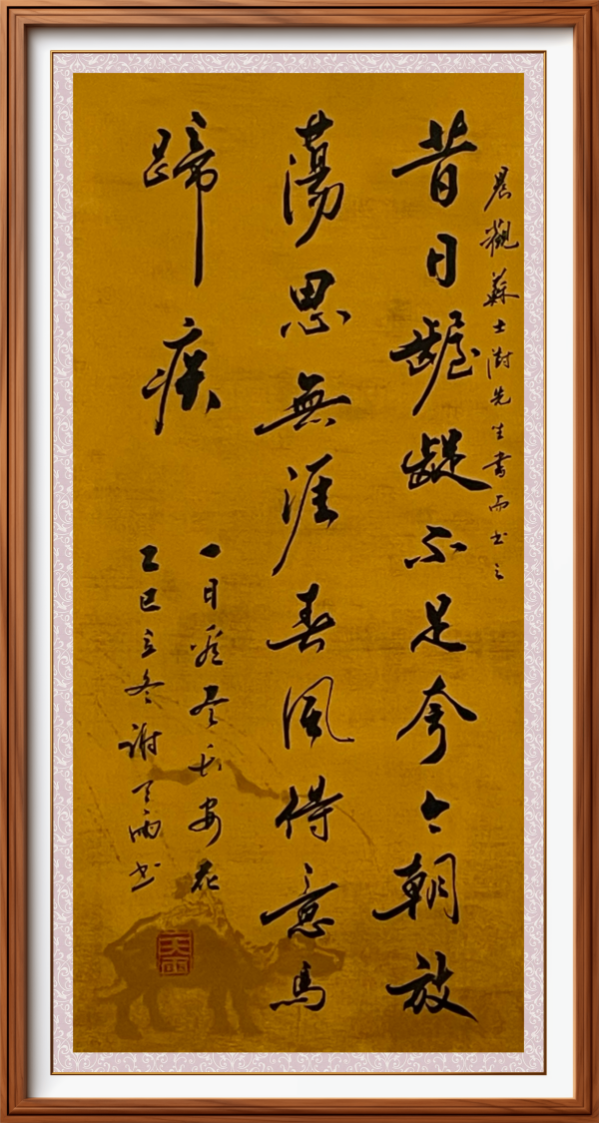 晨觀蘇士澍先生書而书之
昔日齷齪不足夸今朝放
蕩思無涯春風得意馬
蹄疾
一日看尽长安花
乙巳立冬谢天雨书
天雨